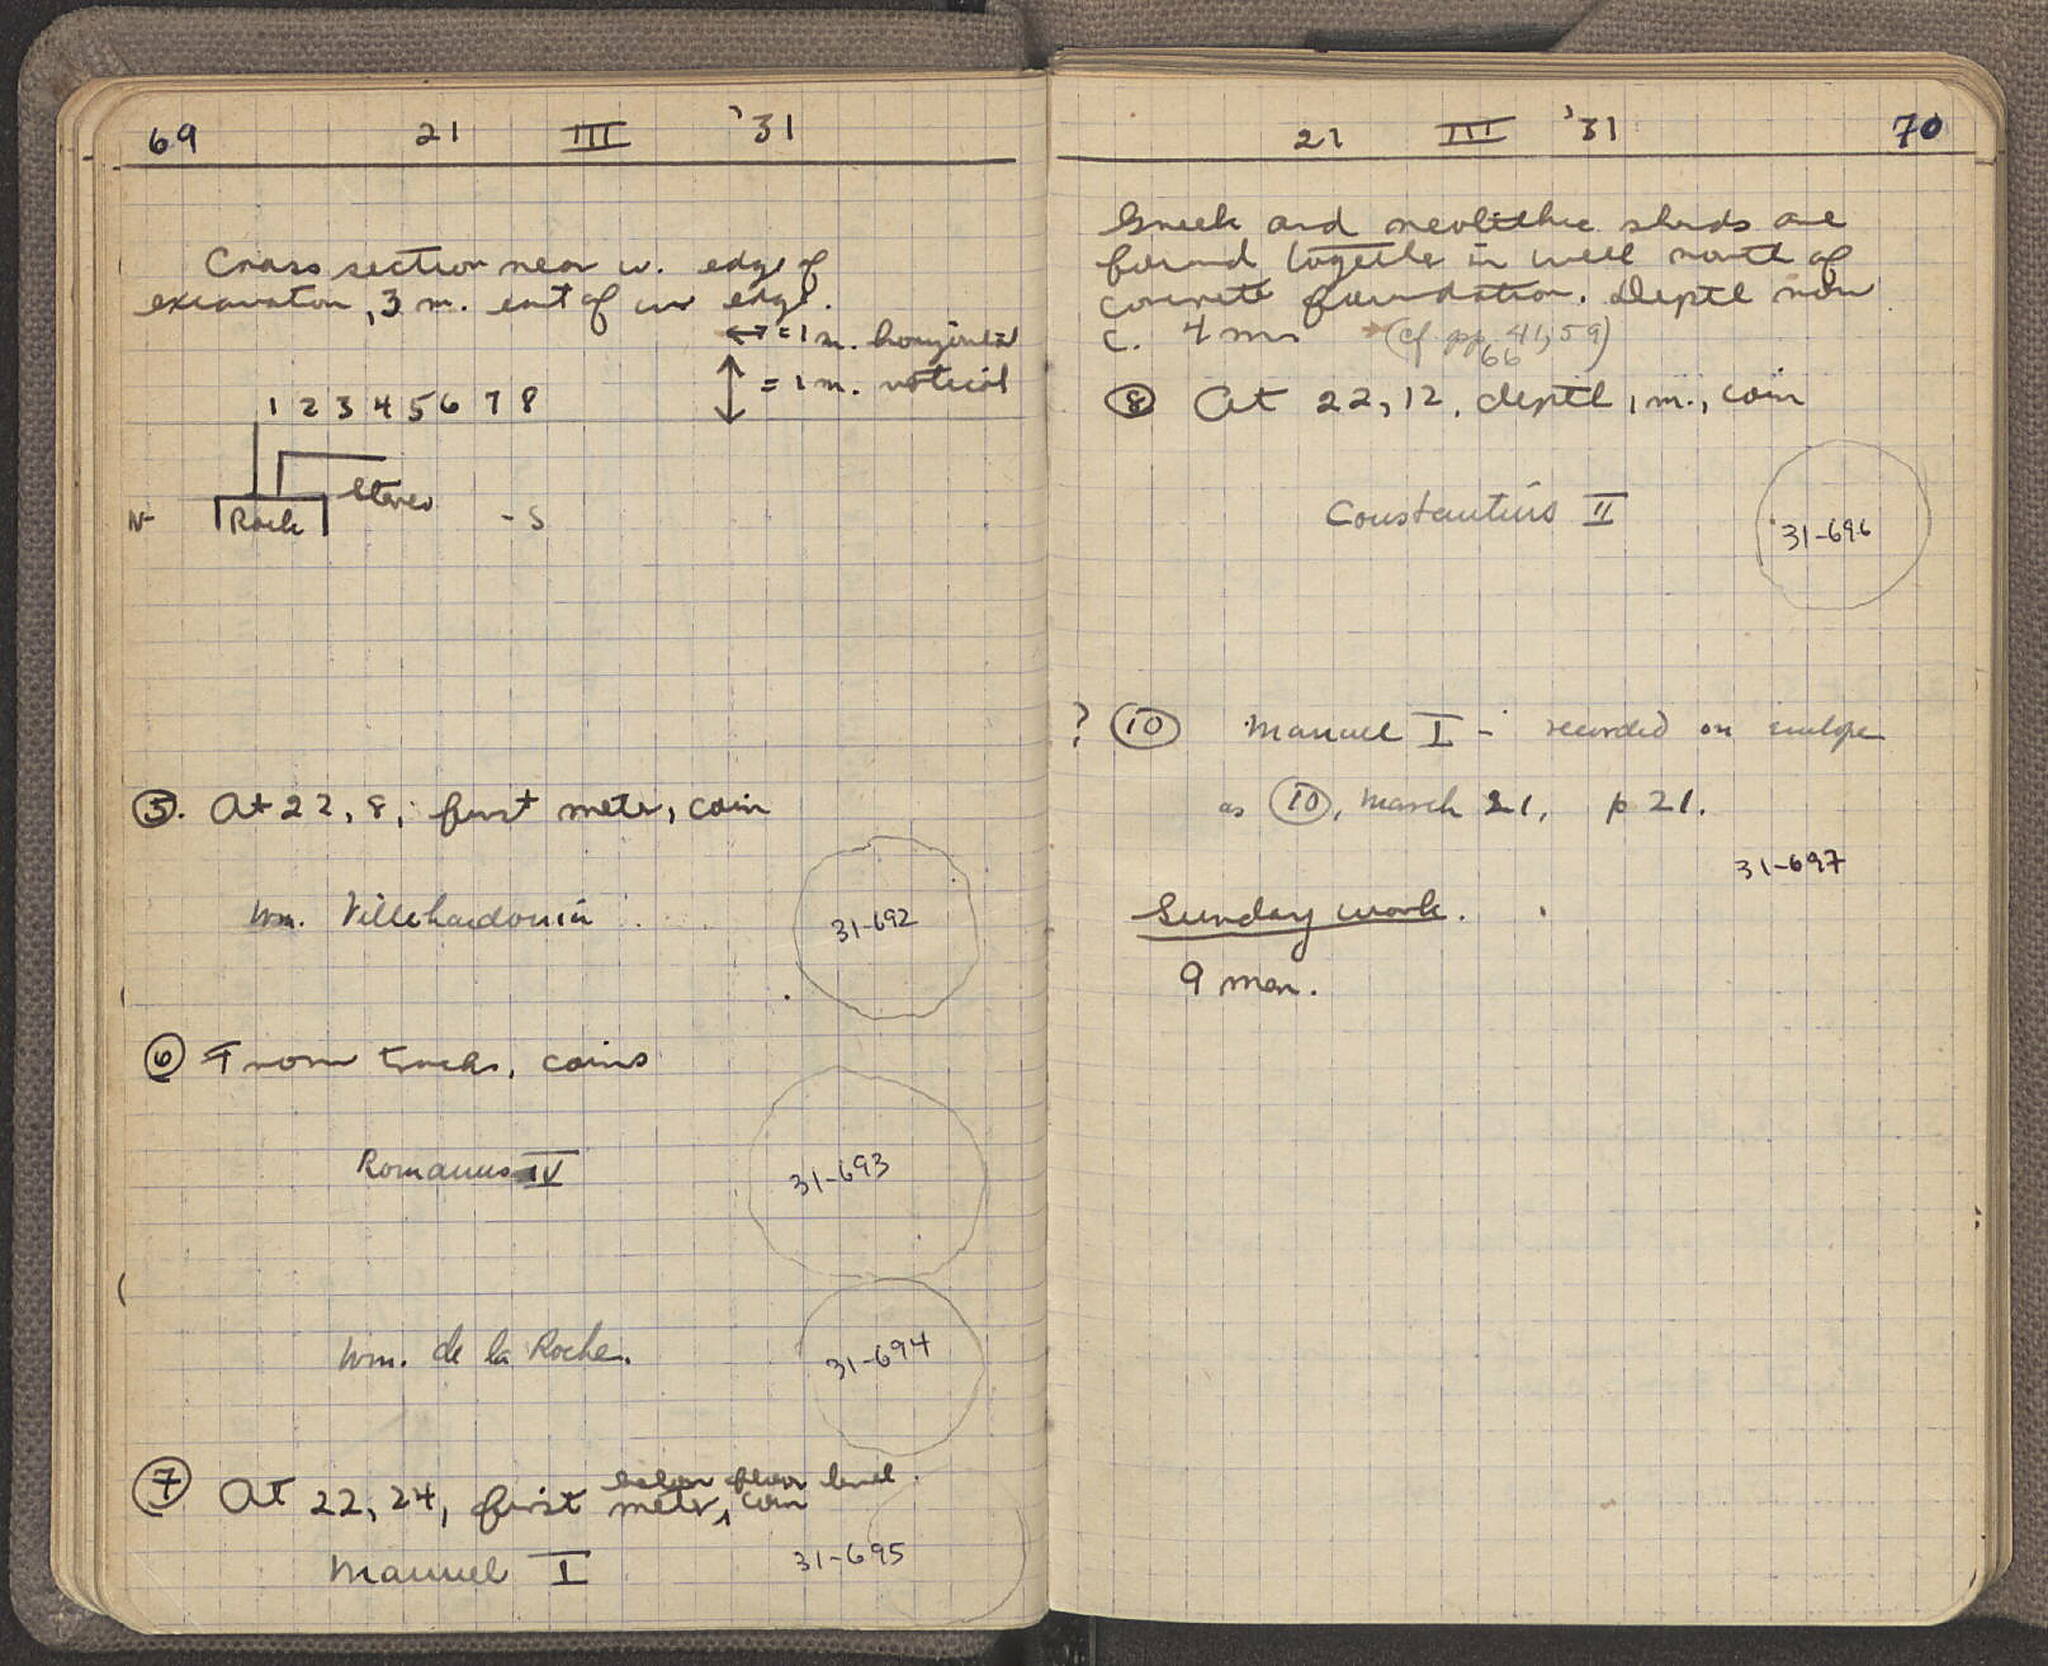 69 21 III '31
Cross section near w. edge of
excavation, 3 m. east of w edge.
↔ = 1 m. horizontal
↕ = 1 m. vertical
1 2 3 4 5 6 7 8
stereo
N- Rock - S
⑤. At 22, 8, first meter, coin
Wm. Villehardouin
31-692
⑥ From tracks, coins
Romanus IV
31-693
Wm. de la Roche.
31-694
below floor level.
⑦ At 22, 24, first meter, coin
Manuel I 31-695
21 III '31 70
Greek and neolithic sherds are
found together in well north of
concrete foundation. Depth now
c. 4 ms (cf. pp 41, 59)
66
⑧ At 22, 12, depth 1 m., coin
Constantius II
31-696
? ⑩ Manuel I - recorded on envelope
as ⑩, March 21, p 21.
31-697
Sunday work.
9 men.